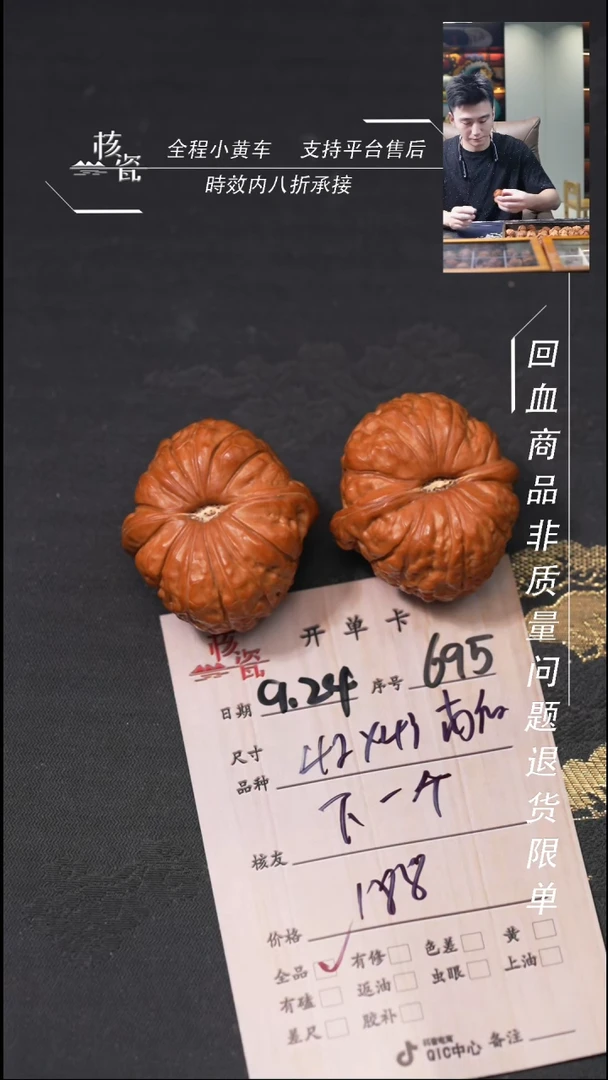 核瓷
全程小黄车 支持平台售后
時效内八折承接
回血商品非质量问题退货限单
核瓷
开单卡
日期 9.24 序号 695
尺寸
品种 42×43 南和
下一个
核友
188
价格
全品 ✓ 有修 色差 黄
有磕 返油 虫眼 上油
差尺 胶补
抖音电商
QIC中心 备注